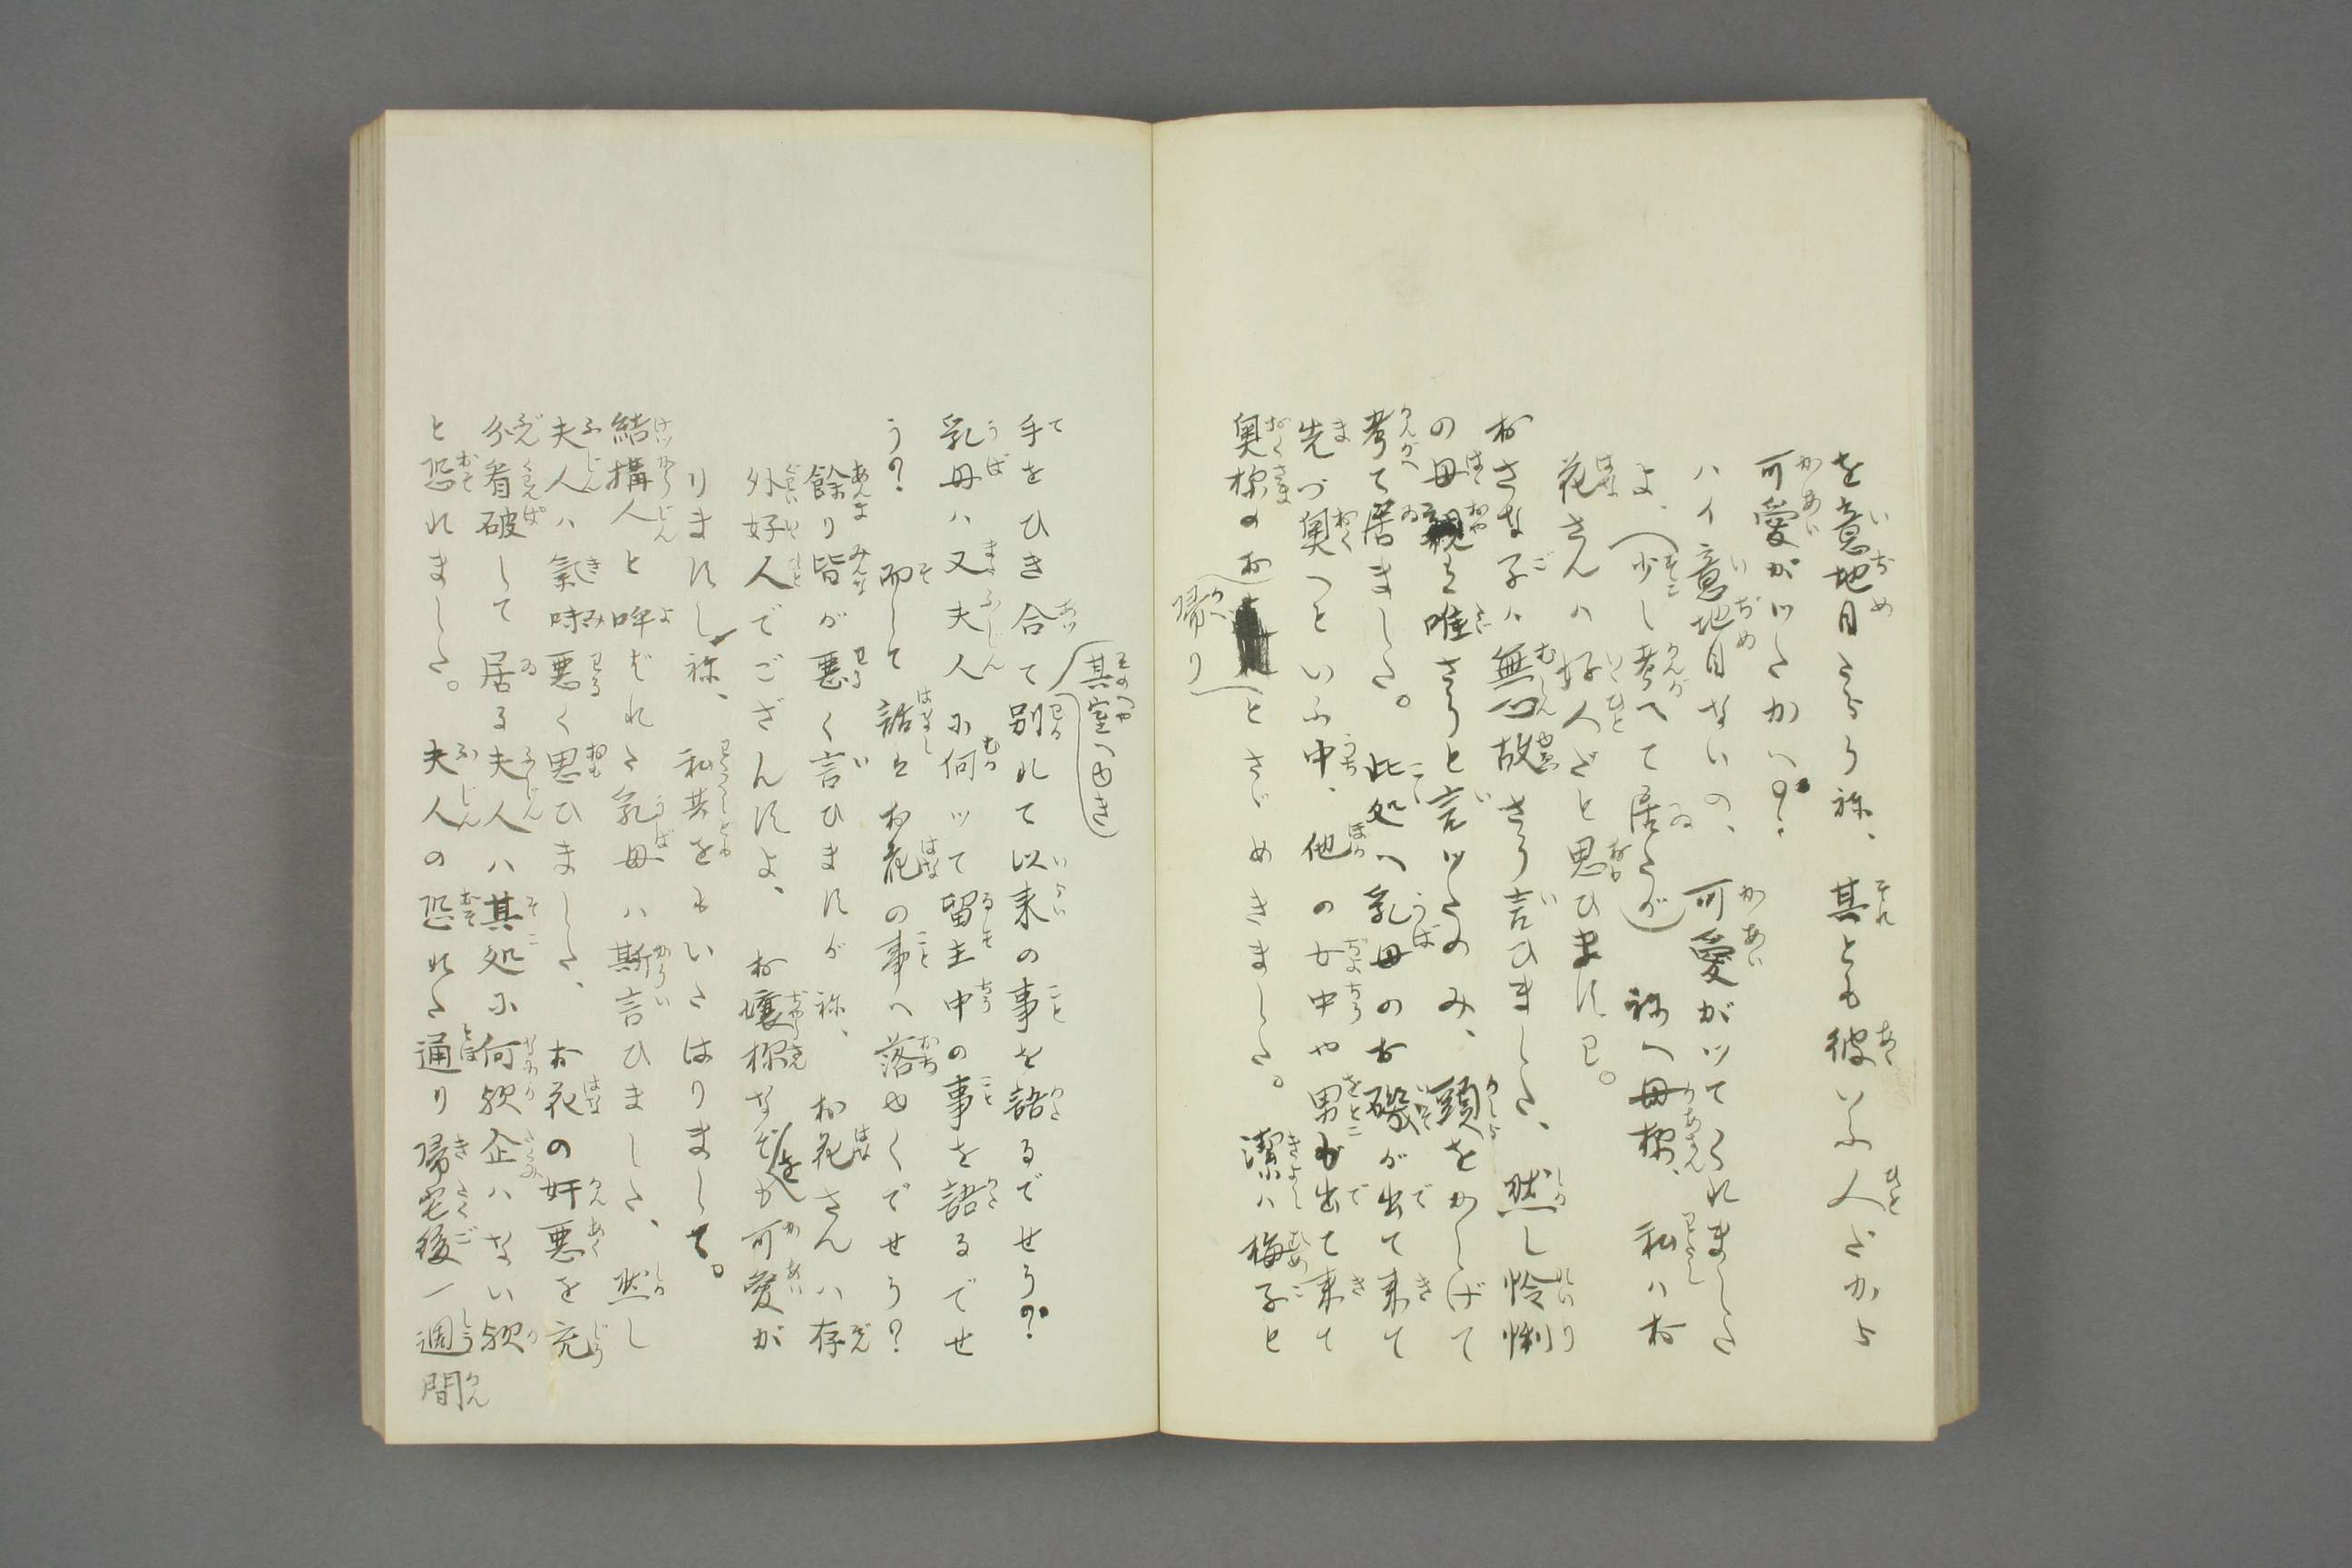 を意地目たらう祢、其とも彼いふ人だから
可愛がツたかへ?
ハイ意地目ないの、可愛がツてくれました
よ、(少し考へて居たが)祢へ母様、私ハお
花さんハ好人だと思ひますワ。
おさな子ハ無心故さう言ひました、然し怜悧
の母親は唯さうと言ツたのみ、頭をかしげて
考て居ました。此処へ乳母のお磯が出て来て
先づ奥へといふ中、他の女中や男も出て来て
奥様のお
帰り
とさゞめきました。潔ハ梅子と
手をひき合て
其室へゆき
別れて以来の事を語るでせう?
乳母ハ又夫人に向ツて留主中の事を語るでせ
う?而して話はお花の事へ落ゆくでせう?
餘り皆が悪く言ひますが祢、お花さんハ存
外好人でござんすよ、お嬢様なぞをが可愛が
りますし祢、私共をもいたはりまして。
結構人と呼ばれた乳母ハ斯言ひました、然し
夫人ハ氣味悪く思ひました、お花の奸悪を充
分看破して居る夫人ハ其処に何歟企ハない歟
と恐れました。夫人の恐れた通り帰宅後一週間